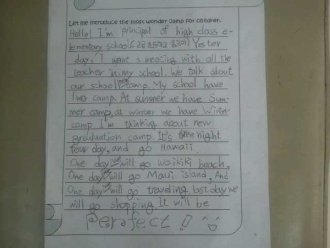 Let me introduce the best wonder camp for children.
Hello! I'm principal of high class e-
lementary school. Yester
day, I want a meeting with all the
teacher in my school. We talk about
our school camp. My school have
two camp. At summer we have sum-
mer camp, at winter we have winter
camp I'm thinking about new
graduation camp. It's night
day, and go Hawaii
One day will go waikiki beach,
One day will go Maui island, And
One day will go traveling last day we
will go shopping. It will be
perfect!